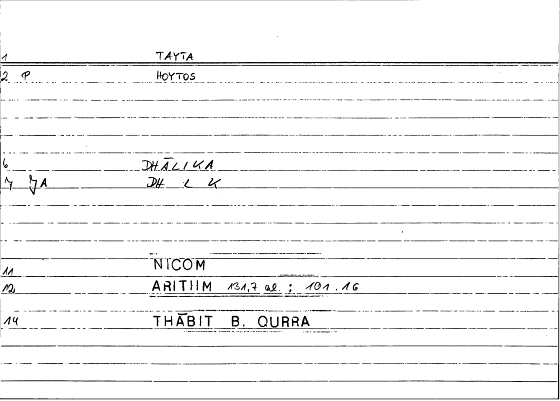 1 TAYTA
2 P HOYTOS
6 DHĀLIKA
7 JA DH L K
11 NICOM
12 ARITIIM 131,7 al. ; 101.16
14 THĀBIT B. QURRA